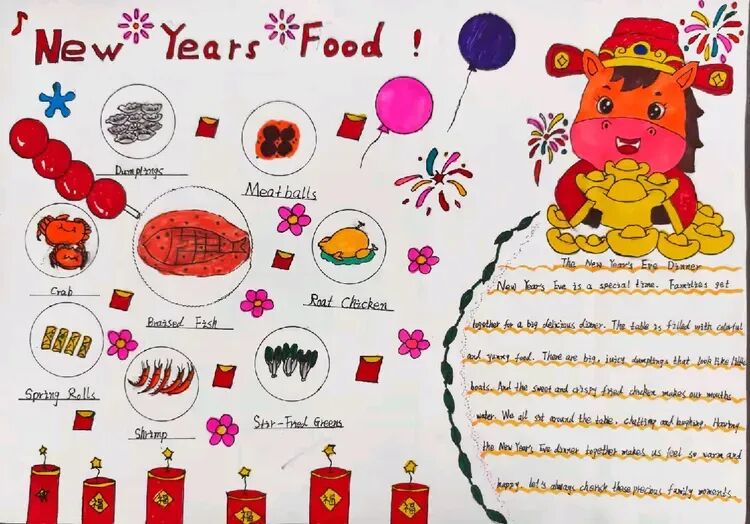 New Years Food !
Dumplings
Meatballs
Crab
Braised Fish
Roat Chicken
Spring Rolls
Shrimp
Stir-Fried Greens
福
福
福
福
福
The New Year's Eve Dinner
New Year's Eve is a special time. Families get
together for a big delicious dinner. The table is filled with colorful
and yummy food. There are big, juicy dumplings that look like little
boats. And the sweet and crispy fried chicken makes our mouths
water. We all sit around the table, chatting and laughing. Having
the New Year's Eve dinner together makes us feel so warm and
happy. let's always cherish these precious family moments